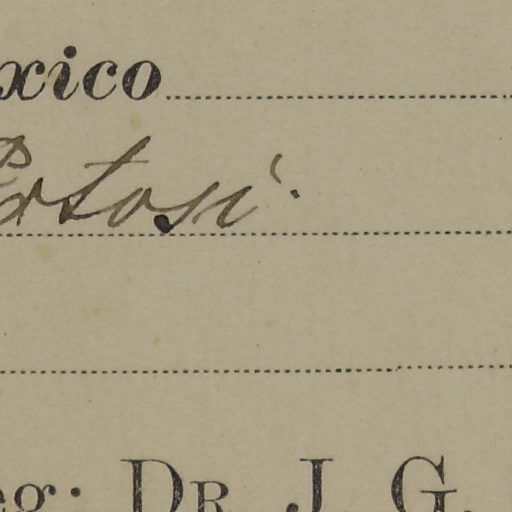 xico
Potosi.
eg. DR. J. G.